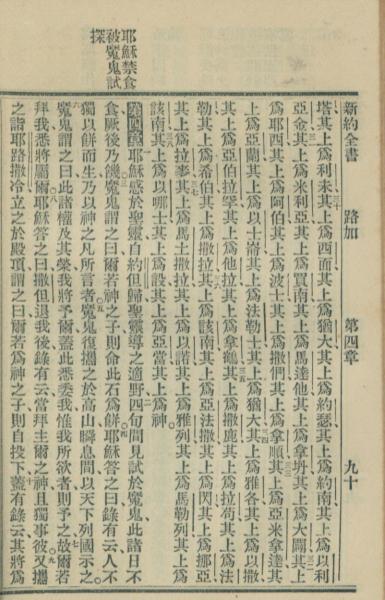 新約全書 路加 第四章 九十
塔其上爲利未其上爲西面其上爲猶大其上爲約瑟其上爲約南其上爲以利
亞金其上爲米利亞其上爲買南其上爲馬達他其上爲拿坍其上爲大闢其上
爲耶西其上爲阿伯其上爲波士其上爲撒們其上爲拿順其上爲亞米拿達其
上爲亞蘭其上爲以士崙其上爲法勒士其上爲猶大其上爲雅各其上爲以撒
其上爲亞伯拉罕其上爲他拉其上爲拿鶴其上爲撒鹿其上爲拉苟其上爲法
勒其上爲希伯其上爲撒拉其上爲該南其上爲亞法撒其上爲閃其上爲挪亞
其上爲拉麥其上爲馬土撒拉其上爲以諾其上爲雅列其上爲馬勒列其上爲
該南其上爲以哪士其上爲設其上爲亞當其上爲神
耶穌禁食
被魔鬼試
探
第四章 耶穌感於聖靈自約但歸聖靈導之適野四旬間見試於魔鬼此諸日不
食厥後乃饑魔鬼謂之曰爾若神之子則命此石爲餅耶穌答之曰錄有云人不
獨以餅而生乃以神之凡所言者魔鬼復攜之於高山瞬息間以天下列國示之
魔鬼謂之曰此諸權及其榮我將予爾蓋此悉委我惟我所欲者則予之故爾若
拜我悉將屬爾耶穌答之曰撒但退我後錄有云當拜主爾之神且獨事彼又攜
之詣耶路撒冷立之於殿頂謂之曰爾若爲神之子則自投下蓋有錄云其將爲